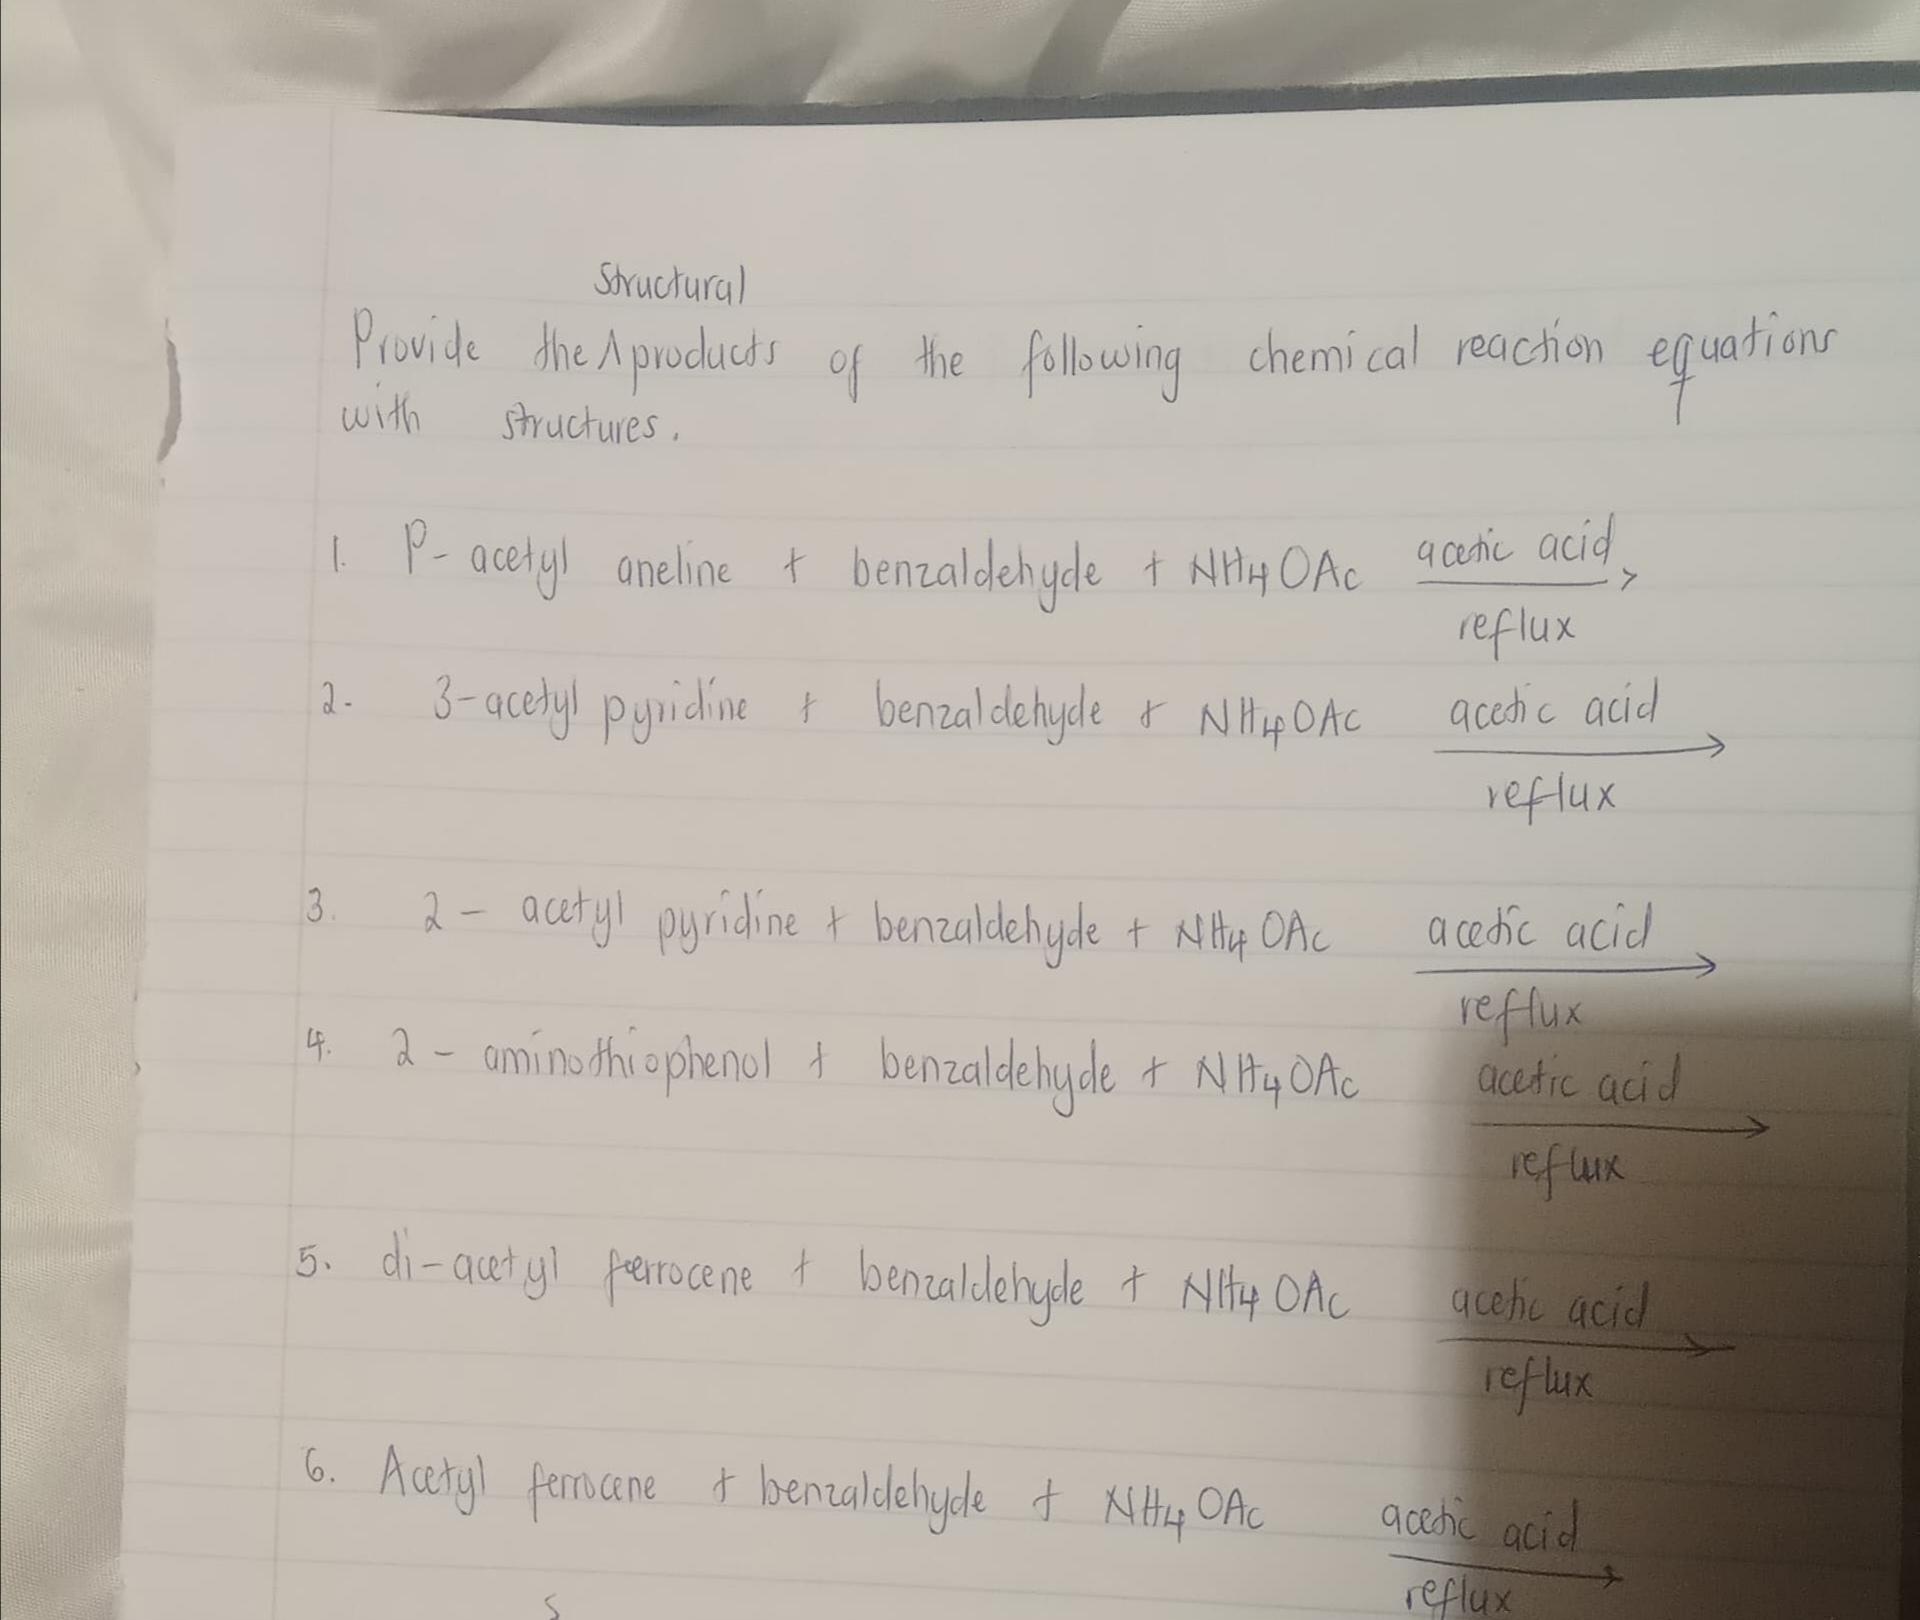 Structural
Provide the ∧ products of the following chemical reaction equations
with structures.
1. P- acetyl aneline + benzaldehyde + NH4OAc acetic acid
reflux
2. 3-acetyl pyridine + benzaldehyde + NH4OAc acetic acid
reflux
3. 2 - acetyl pyridine + benzaldehyde + NH4OAc acetic acid
reflux
4. 2 - aminothiophenol + benzaldehyde + NH4OAc acetic acid
reflux
5. di-acetyl ferrocene + benzaldehyde + NH4OAc acetic acid
reflux
6. Acetyl ferrocene + benzaldehyde + NH4OAc acetic acid
reflux